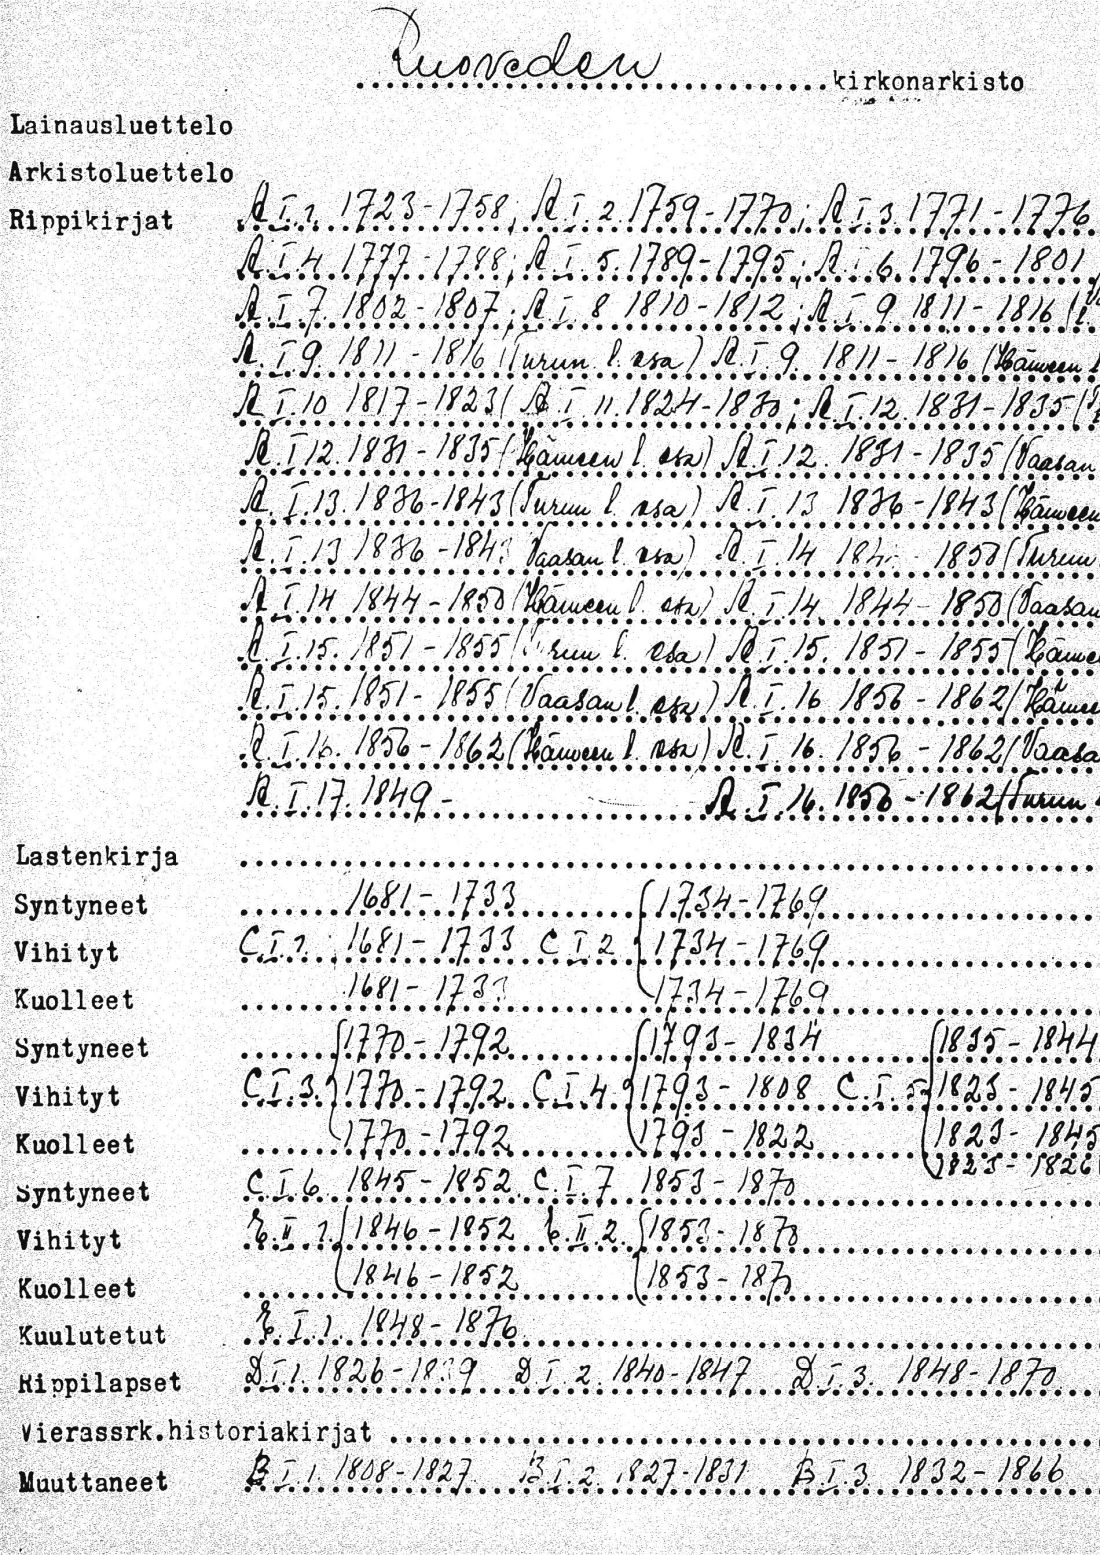 Ruoveden kirkonarkisto
Lainausluettelo
Arkistoluettelo
Rippikirjat A.I.1. 1723-1758; A.I.2. 1759-1770; A.I.3. 1771-1776
A.I.4. 1777-1788; A.I.5. 1789-1795; A.I.6. 1796-1801
A.I.7. 1802-1807; A.I.8 1810-1812; A.I.9 1811-1816
A.I.9. 1811-1816 (Turun l. osa) A.I.9. 1811-1816 (Hämeen
A.I.10 1817-1823( A.I.11. 1824-1830; A.I.12. 1831-1835(
A.I.12. 1831-1835 (Hämeen l. osa) A.I.12. 1831-1835 (Vaasan
A.I.13. 1836-1843 (Turun l. osa) A.I.13 1836-1843 (Hämeen
A.I.13 1836-184 Vaasan l. osa) A.I.14 184 - 1850 (Turun
A.I.14 1844-1850 (Hämeen l. osa) A.I.14. 1844-1850 (Vaasan
A.I.15. 1851-1855 (Turun l. osa) A.I.15. 1851-1855 (Hämee
A.I.15. 1851-1855 (Vaasan l. osa) A.I.16 1856-1862 (Hämee
A.I.16. 1856-1862 (Hämeen l. osa) A.I.16. 1856-1862 (Vaasa
A.I.17. 1849- A.I.16. 1856-1862 (Turun
Lastenkirja
Syntyneet 1681-1733 1734-1769
Vihityt C.I.1. 1681-1733 C.I.2 1734-1769
Kuolleet 1681-1733 1734-1769
Syntyneet 1770-1792 1793-1834 1835-1844
Vihityt C.I.3. 1770-1792 C.I.4. 1793-1808 C.I.5 1823-1845
Kuolleet 1770-1792 1793-1822 1823-1845
1823-1826
Syntyneet C.I.6. 1845-1852 C.I.7 1853-1870
Vihityt E.II.1. 1846-1852 E.II.2. 1853-1870
Kuolleet 1846-1852 1853-187
Kuulutetut E.I.1. 1848-1876
Rippilapset D.I.1. 1826-1839 D.I.2. 1840-1847 D.I.3. 1848-1870
Vierassrk.historiakirjat
Muuttaneet B.I.1. 1808-1827 B.I.2. 1827-1831 B.I.3. 1832-1866